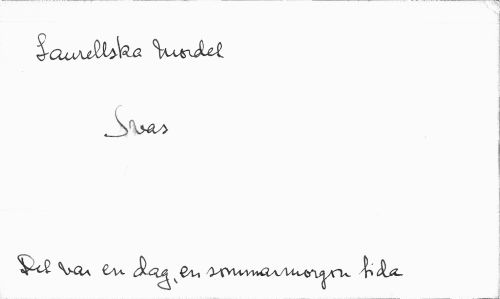 Laurellska mordet
Svas
Det var en dag, en sommarmorgon tida